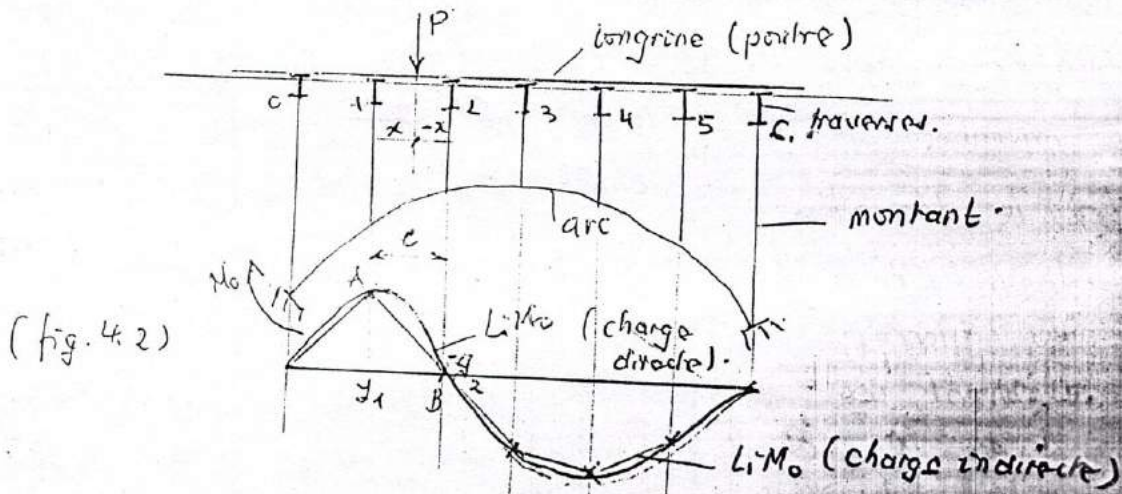 P
longrine (poutre)
0 1 2 3 4 5 6. traverses.
x -x
arc
montant.
c
M₀
A
Li-M₀ (charge directe).
(fig. 4.2)
y₁ B y₂
Li-M₀ (charge indirecte)